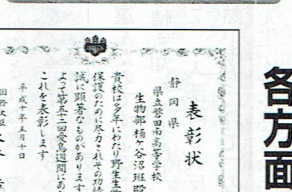 各方面
表彰状
静岡県
県立磐田南高等学校
生物部桶ケ谷沼班殿
貴校は多年にわたり野生生
保護のために尽力されその功績
誠に顕著なものがあります
よって第五十二回愛鳥週間にあ
これを表彰します
平成十年五月十日